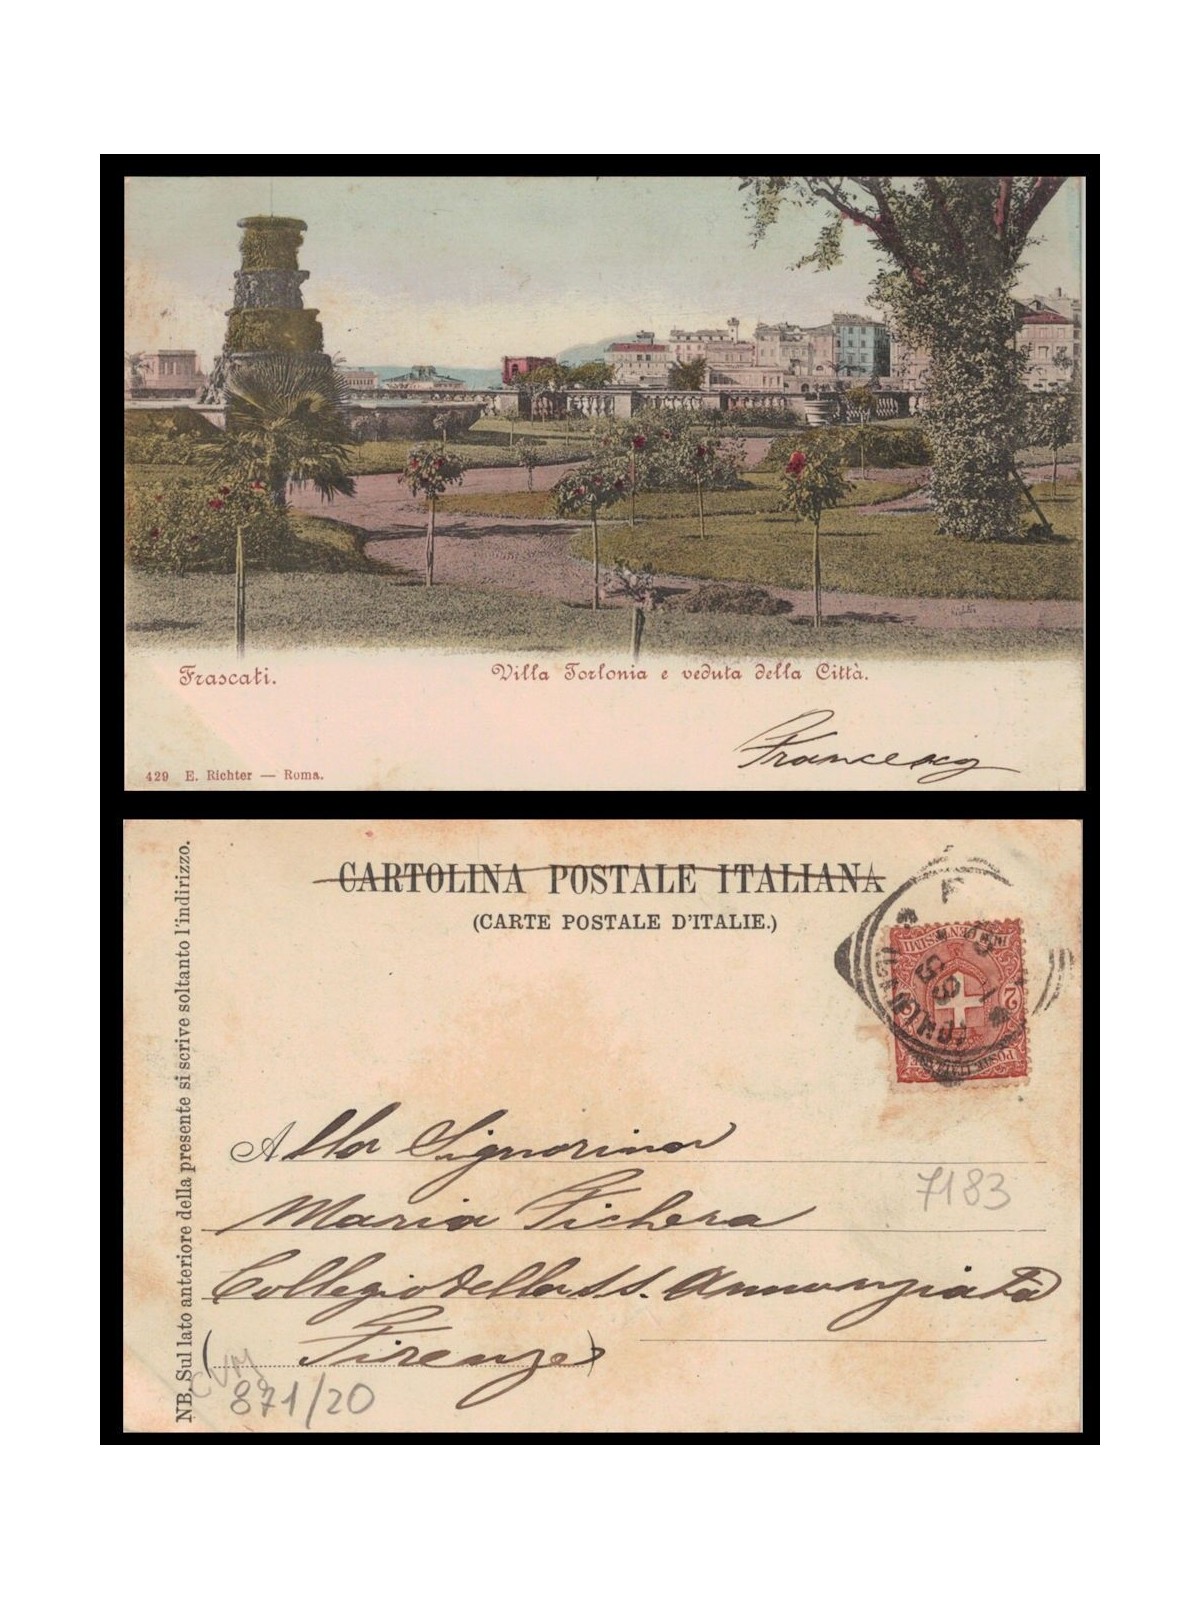 Frascati.
Villa Torlonia e veduta della Città.
429 E. Richter — Roma.
CARTOLINA POSTALE ITALIANA
(CARTE POSTALE D'ITALIE.)
NB. Sul lato anteriore della presente si scrive soltanto l'indirizzo.
POSTE ITALIANE
2
DUE CENTESIMI
Alla Signorina
Maria Fichera
7183
Collegio della SS. Annunziata
(Firenze)
871/20